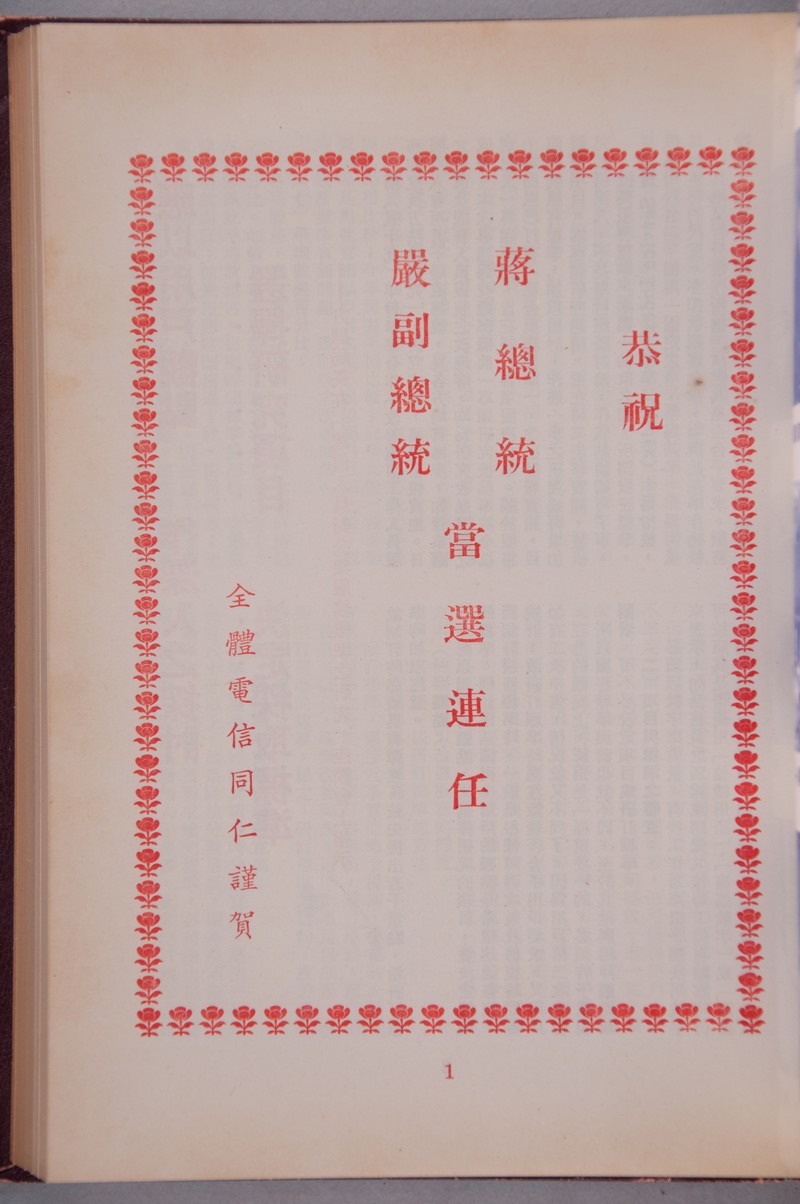 恭祝
蔣總統
嚴副總統
當選連任
全體電信同仁謹賀
1